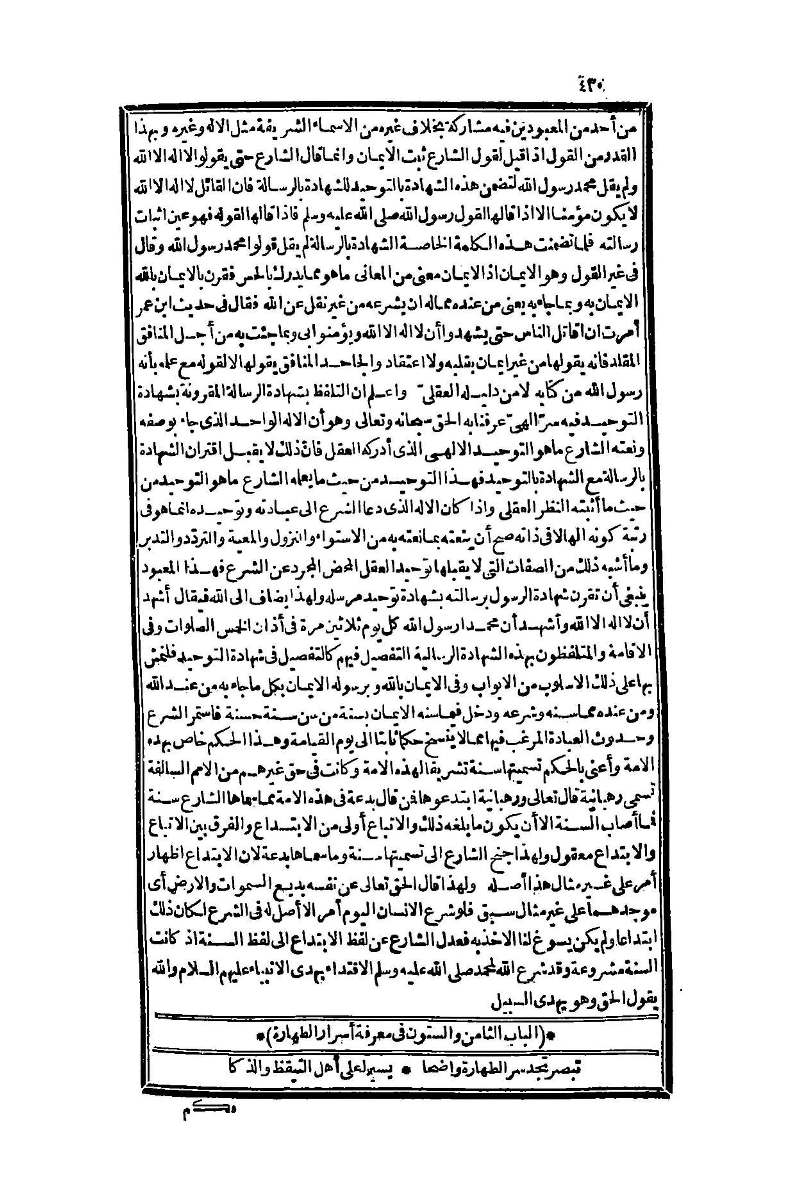 ٤٣٠
من أحد من المعبودين فيه مشاركة بخلاف غيره من الاسماء الشريفة مثل الاله وغيره وبهذا
القدر من القول اذا قيل لقول الشارع ثبت الايمان وانما قال الشارع حتى يقولوا لا اله الا الله
ولم يقل محمد رسول الله لتضمن هذه الشهادة بالتوحيد للشهادة بالرسالة فان القائل لا اله الا الله
لا يكون مؤمنا الا اذا قالها لقول رسول الله صلى الله عليه وسلم فاذا قالها لقوله فهو عين اثبات
رسالته فلما تضمنت هذه الكلمة الخاصة الشهادة بالرسالة لم يقل قولوا محمد رسول الله وقال
فى غير القول وهو الايمان اذ الايمان معنى من المعانى ما هو مما يدرك بالحس فقرن بالايمان بالله
الايمان به وبما جاء به يعنى من عنده مما له ان يشرعه من غير نقل عن الله فقال فى حديث ابن عمر
أمرت ان اقاتل الناس حتى يشهدوا أن لا اله الا الله ويؤمنوا بى وبما جئت به من أجل المنافق
المقلد فانه يقولها من غير ايمان بقلبه ولا اعتقاد والجاحد المنافق يقولها لا لقوله مع علمه بأنه
رسول الله من كتابه لا من دليله العقلىّ واعلم ان التلفظ بشهادة الرسالة المقرونة بشهادة
التوحيد فيه سرّ الهىّ عرفنا به الحق سبحانه وتعالى وهو أن الاله الواحد الذى جاء بوصفه
ونعته الشارع ما هو التوحيد الالهى الذى أدركه العقل فان ذلك لا يقبل اقتران الشهادة
بالرسالة مع الشهادة بالتوحيد فهذا التوحيد من حيث ما يعلمه الشارع ما هو التوحيد من
حيث ما أثبته النظر العقلى واذا كان الاله الذى دعا الشرع الى عبادته وتوحيده انما هو فى
رتبة كونه الها لا فى ذاته صح أن ينعته بما نعته به من الاستواء والنزول والمعية والتردّد والتدبر
وما أشبه ذلك من الصفات التى لا يقبلها توحيد العقل المحض المجرد عن الشرع فهذا المعبود
ينبغى أن تقرن شهادة الرسول برسالته بشهادة توحيد مرسله ولهذا يضاف الى الله فيقال أشهد
أن لا اله الا الله وأشهد أن محمدا رسول الله كل يوم ثلاثين مرة فى أذان الخمس الصلوات وفى
الاقامة والمتلفظون بهذه الشهادة الرسالية التفصيل فيهم كالتفصيل فى شهادة التوحيد فلنمش
بها على ذلك الاسلوب من الابواب وفى الايمان بالله وبرسوله الايمان بكل ما جاء به من عند الله
ومن عنده مما سنه وشرعه ودخل فيما سنه الايمان بسنة من سن سنة حسنة فاستمر الشرع
وحدوث العبادة المرغب فيها مما لا ينسخ حكما ثابتا الى يوم القيامة وهذا الحكم خاص بهذه
الامة وأعنى بالحكم تسميتها سنة تشريفا لهذه الامة وكانت فى حق غيرهم من الامم السالفة
تسمى رهبانية قال تعالى ورهبانية ابتدعوها فمن قال بدعة فى هذه الامة مما سماها الشارع سنة
فما أصاب السنة الا أن يكون ما بلغه ذلك والاتباع أولى من الابتداع والفرق بين الاتباع
والابتداع معقول ولهذا جنح الشارع الى تسميتها سنة وما سماها بدعة لان الابتداع اظهار
أمر على غير مثال هذا أصله ولهذا قال الحق تعالى عن نفسه بديع السموات والارض أى
موجدهما على غير مثال سبق فلو شرع الانسان اليوم أمرا لا أصل له فى الشرع لكان ذلك
ابتداعا ولم يكن يسوغ لنا الاخذ به فعدل الشارع عن لفظ الابتداع الى لفظ السنة اذ كانت
السنة مشروعة وقد شرع الله لمحمد صلى الله عليه وسلم الاقتداء بهدى الانبياء عليهم السلام والله
يقول الحق وهو يهدى السبيل
*(الباب الثامن والستون فى معرفة أسرار الطهارة)*
تبصر تجد سر الطهارة واضحا * يسيرا على أهل التيقظ والذكا